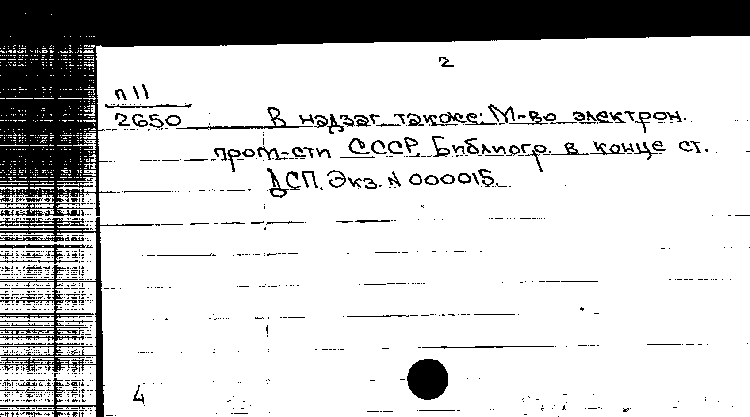 2
п 11
2650
В надзаг. также: М-во электрон.
пром-сти СССР. Библиогр. в конце ст.
ДСП. Экз. N 000015.
4